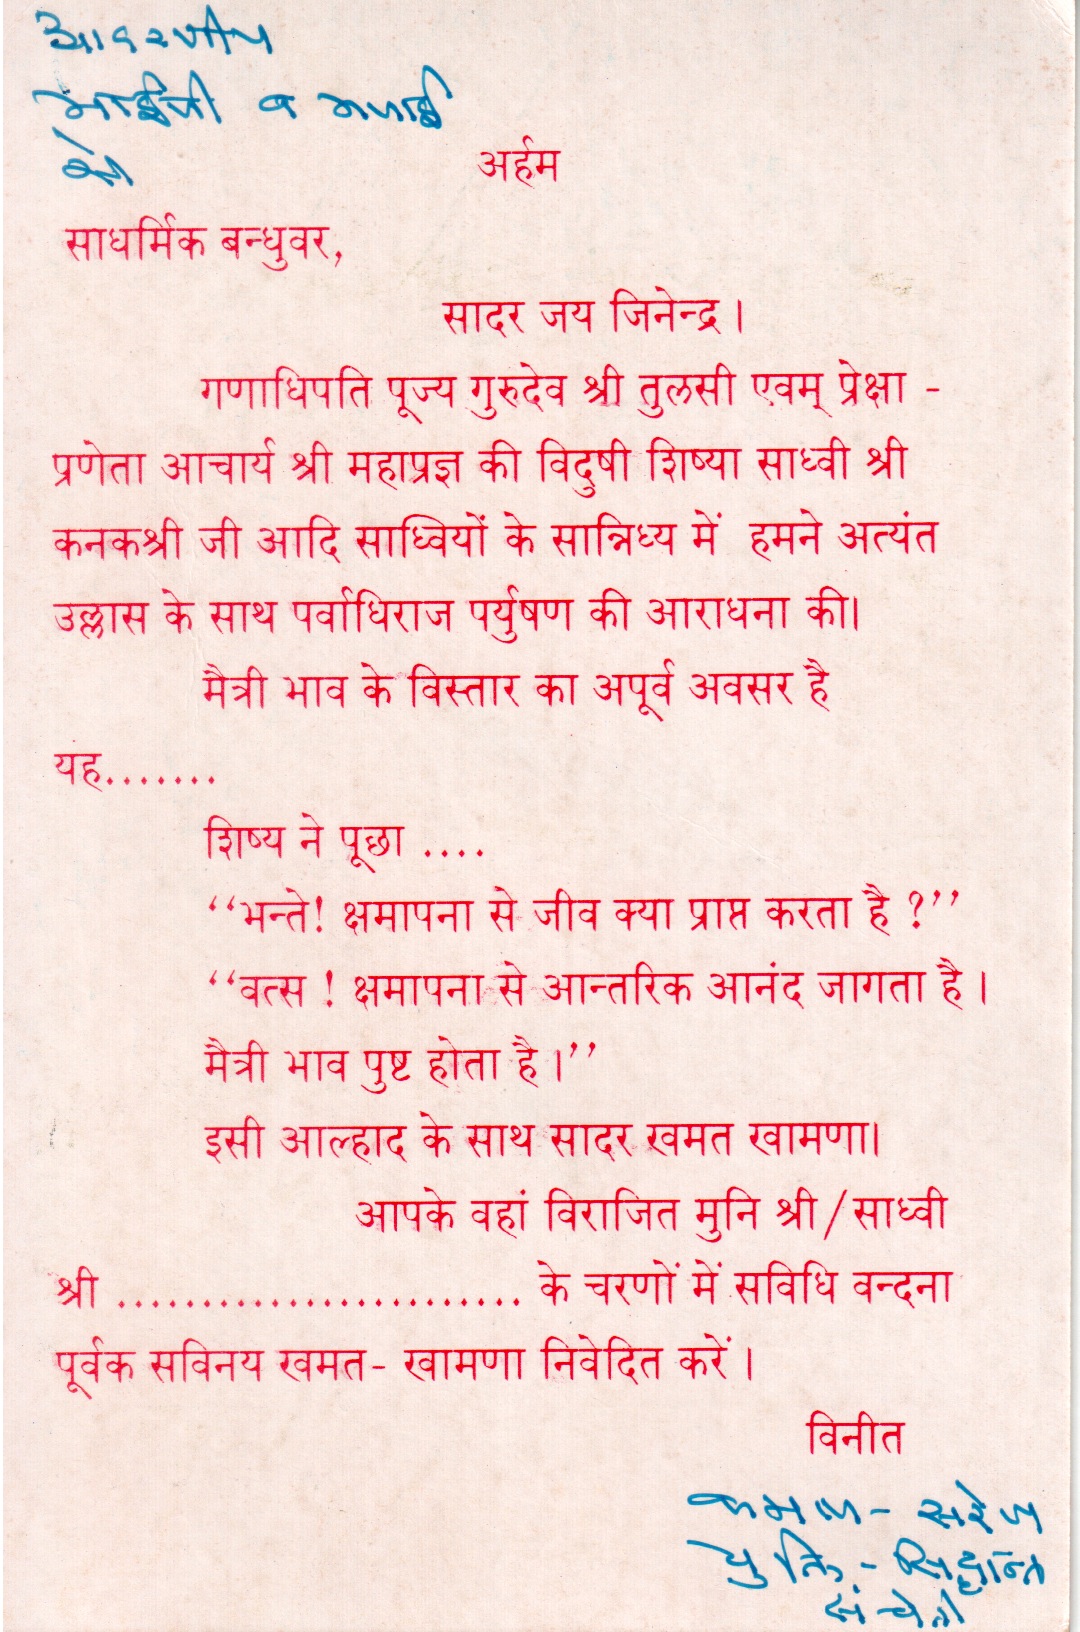 आदरणीय
भाईजी व भाभी
को
अर्हम
साधर्मिक बन्धुवर,
सादर जय जिनेन्द्र ।
गणाधिपति पूज्य गुरुदेव श्री तुलसी एवम् प्रेक्षा -
प्रणेता आचार्य श्री महाप्रज्ञ की विदुषी शिष्या साध्वी श्री
कनकश्री जी आदि साध्वियों के सान्निध्य में हमने अत्यंत
उल्लास के साथ पर्वाधिराज पर्युषण की आराधना की।
मैत्री भाव के विस्तार का अपूर्व अवसर है
यह.......
शिष्य ने पूछा ....
‘‘भन्ते! क्षमापना से जीव क्या प्राप्त करता है ?’’
‘‘वत्स ! क्षमापना से आन्तरिक आनंद जागता है ।
मैत्री भाव पुष्ट होता है ।’’
इसी आल्हाद के साथ सादर खमत खामणा।
आपके वहां विराजित मुनि श्री/साध्वी
श्री ........................ के चरणों में सविधि वन्दना
पूर्वक सविनय खमत- खामणा निवेदित करें ।
विनीत
कमल - सरोज
युक्ति - सिद्धान्त
संचेती